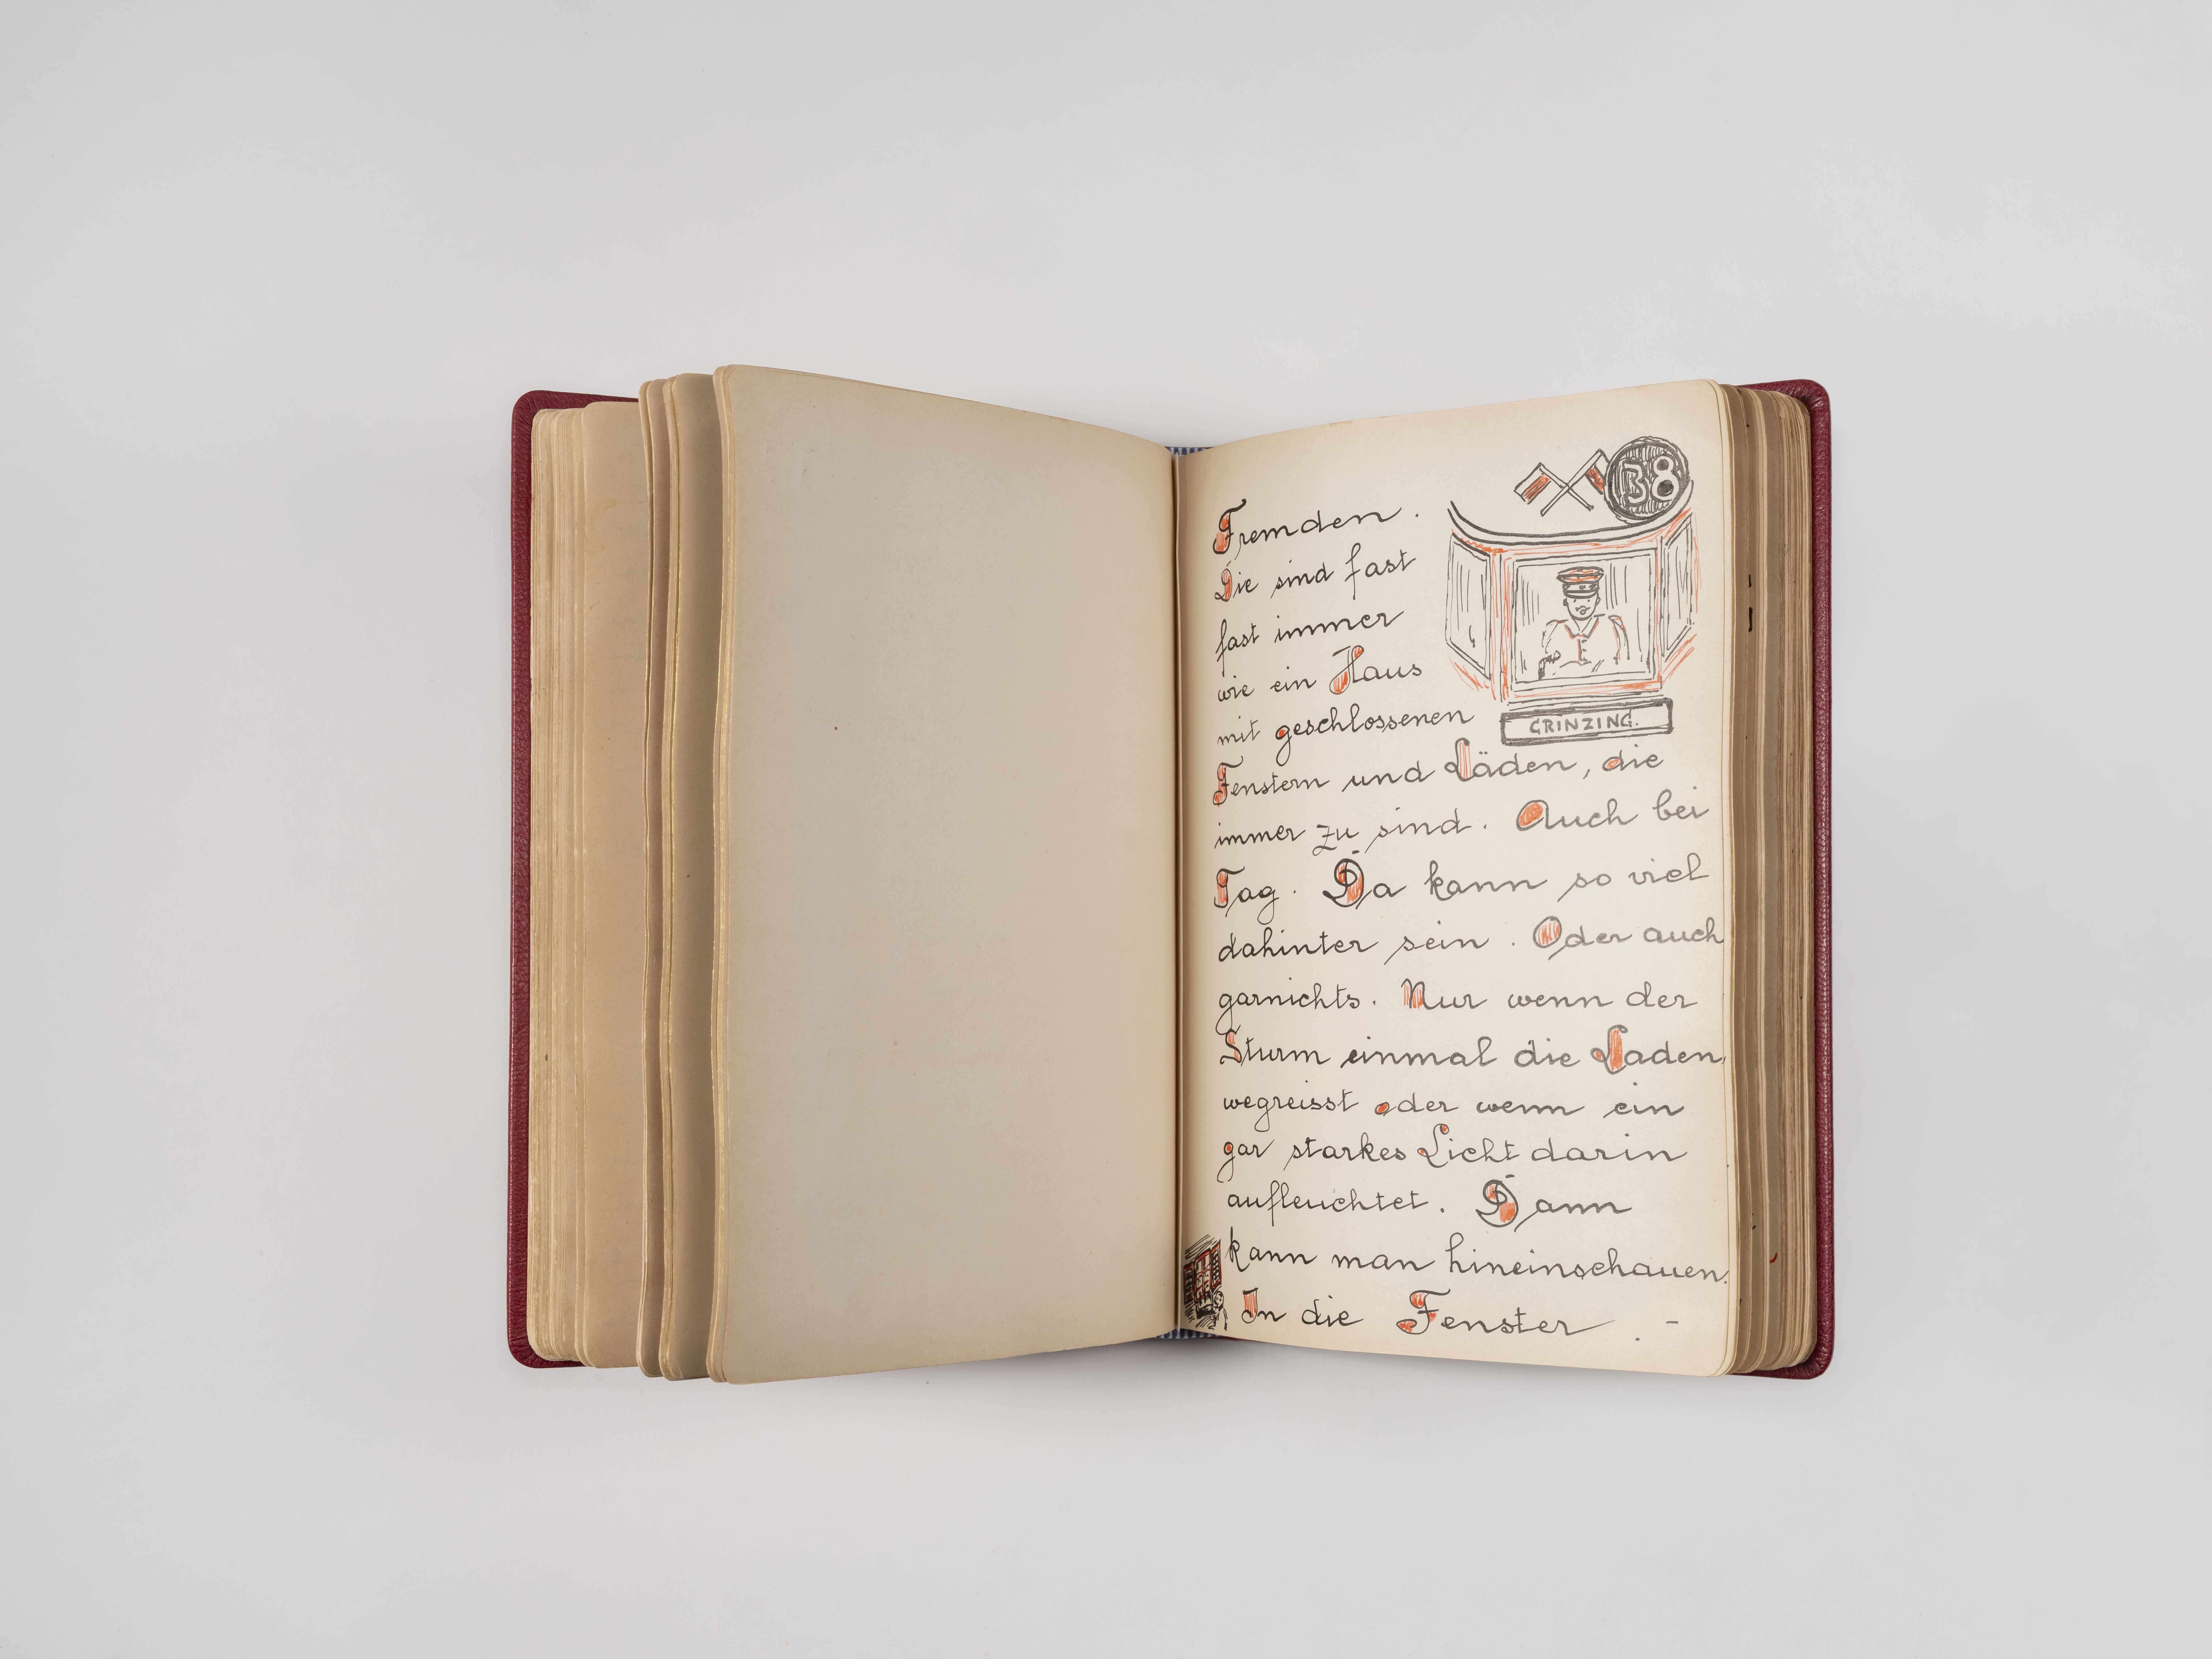 38
Fremden.
Die sind fast
fast immer
wie ein Haus
mit geschlossenen
GRINZING.
Fenstern und Läden, die
immer zu sind. Auch bei
Tag. Da kann so viel
dahinter sein. Oder auch
garnichts. Nur wenn der
Sturm einmal die Laden
wegreisst oder wenn ein
gar starkes Licht darin
aufleuchtet. Dann
kann man hineinschauen.
In die Fenster. -